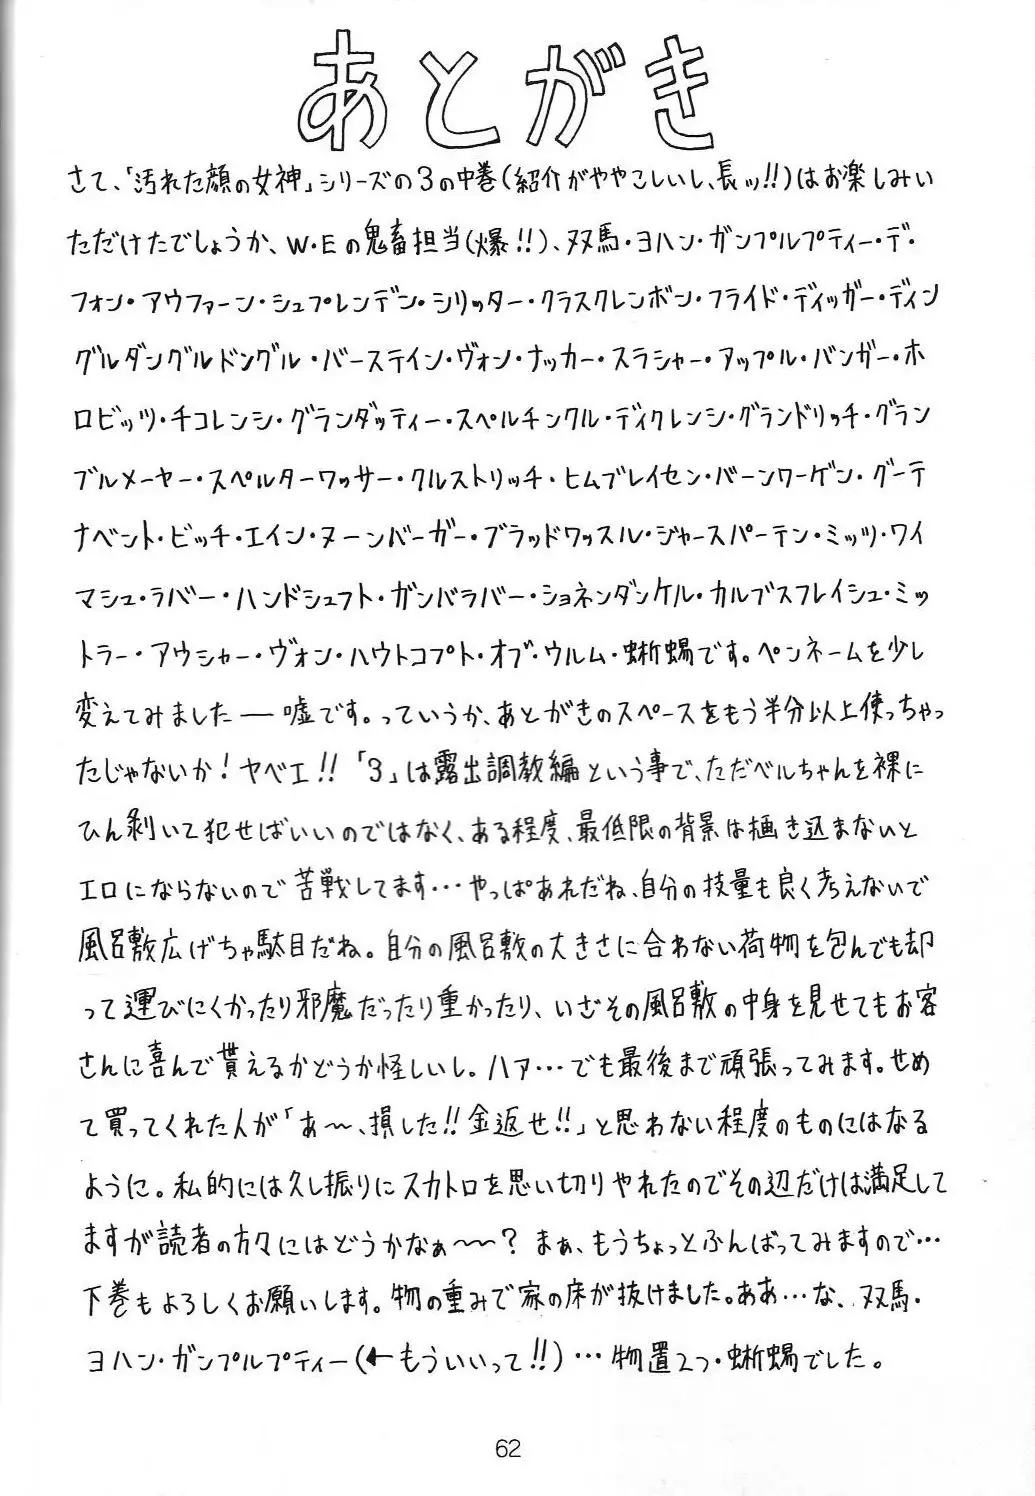 あとがき
さて、「汚れた顔の女神」シリーズの3の中巻(紹介がややこしいし、長ッ!!)はお楽しみい
ただけたでしょうか、W・Eの鬼畜担当(爆!!)、双馬・ヨハン・ガンプルプティー・デ・
フォン・アウファーン・シュプレンデン・シリッター・クラスクレンボン・フライド・ディッガー・ディン
グルダングルドングル・バーステイン・ヴォン・ナッカー・スラシャー・アップル・バンガー・ホ
ロビッツ・チコレンシ・グランダッティー・スペルチンクル・ディクレンシ・グランドリッチ・グラン
ブルメーヤー・スペルターワッサー・クルストリッチ・ヒムブレイセン・バーンワーゲン・グーテ
ナベント・ビッチ・エイン・ヌーンバーガー・ブラッドワッスル・ジャースパーテン・ミッツ・ワイ
マシュ・ラバー・ハンドシュフト・ガンバラバー・ショネンダンケル・カルブスフレイシュ・ミッ
トラー・アウシャー・ヴォン・ハウトコプト・オブ・ウルム・蜥蜴です。ペンネームを少し
変えてみました──嘘です。っていうか、あとがきのスペースをもう半分以上使っちゃっ
たじゃないか!ヤベエ!!「3」は露出調教編という事で、ただベルちゃんを裸に
ひん剥いて犯せばいいのではなく、ある程度、最低限の背景は描き込まないと
エロにならないので苦戦してます…やっぱあれだね、自分の技量も良く考えないで
風呂敷広げちゃ駄目だね。自分の風呂敷の大きさに合わない荷物を包んでも却
って運びにくかったり邪魔だったり重かったり、いざその風呂敷の中身を見せてもお客
さんに喜んで貰えるかどうか怪しいし。ハァ…でも最後まで頑張ってみます。せめ
て買ってくれた人が「あ〜、損した!!金返せ!!」と思わない程度のものにはなる
ように。私的には久し振りにスカトロを思い切りやれたのでその辺だけは満足して
ますが読者の方々にはどうかなぁ〜〜?まぁ、もうちょっとふんばってみますので…
下巻もよろしくお願いします。物の重みで家の床が抜けました。ああ…な、双馬・
ヨハン・ガンプルプティー(←もういいって!!)…物置2つ・蜥蜴でした。
62